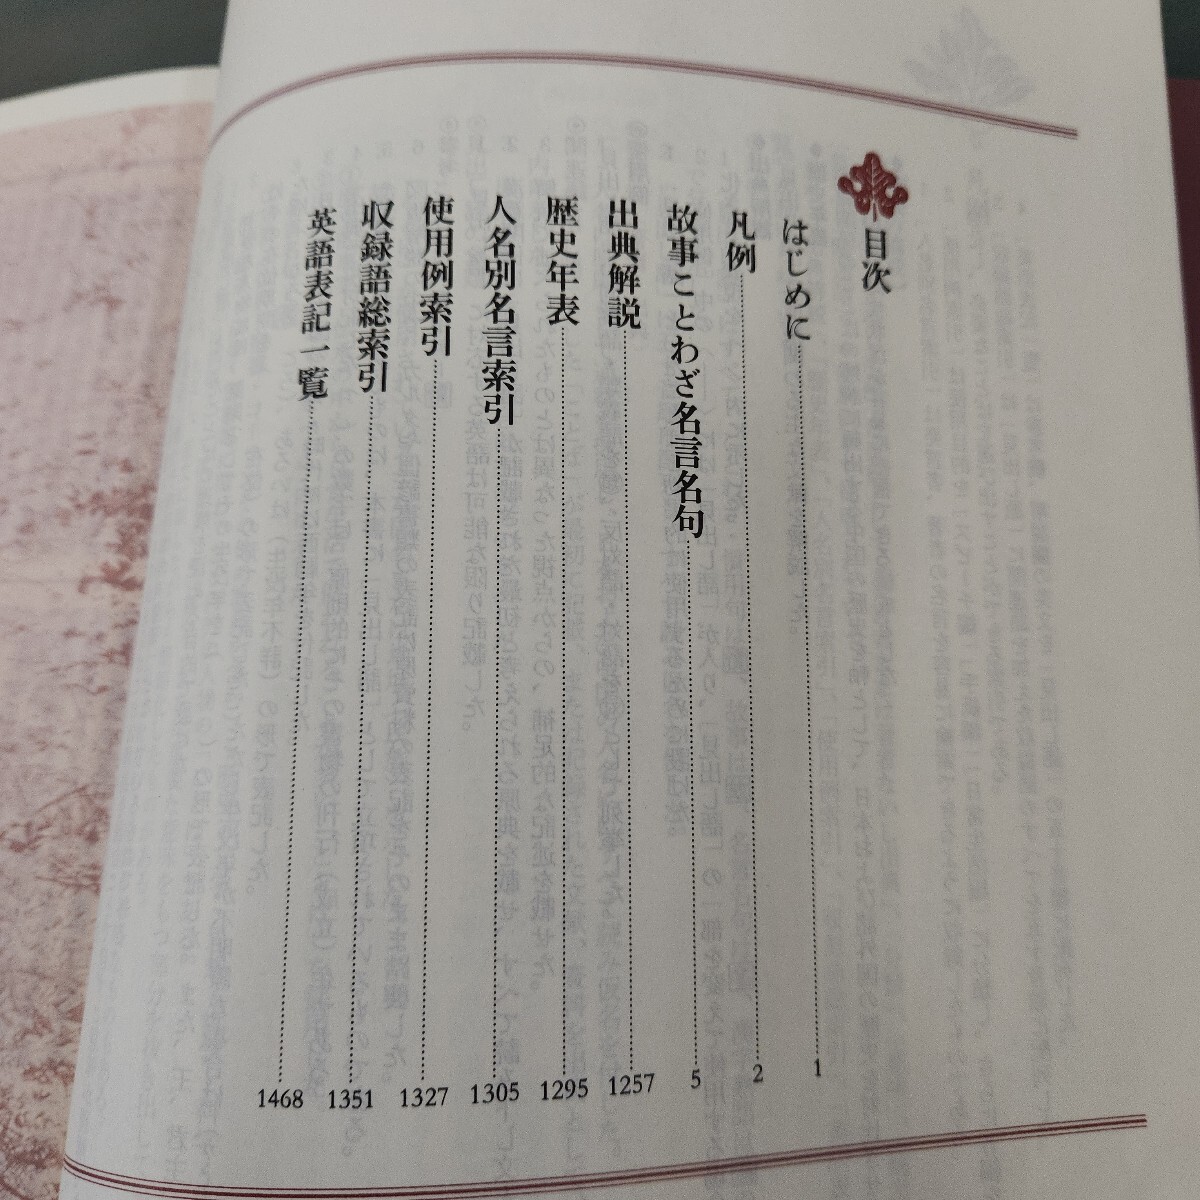 目次
はじめに……1
凡例……2
故事ことわざ名言名句……5
出典解説……1257
歴史年表……1295
人名別名言索引……1305
使用例索引……1327
収録語総索引……1351
英語表記一覧……1468